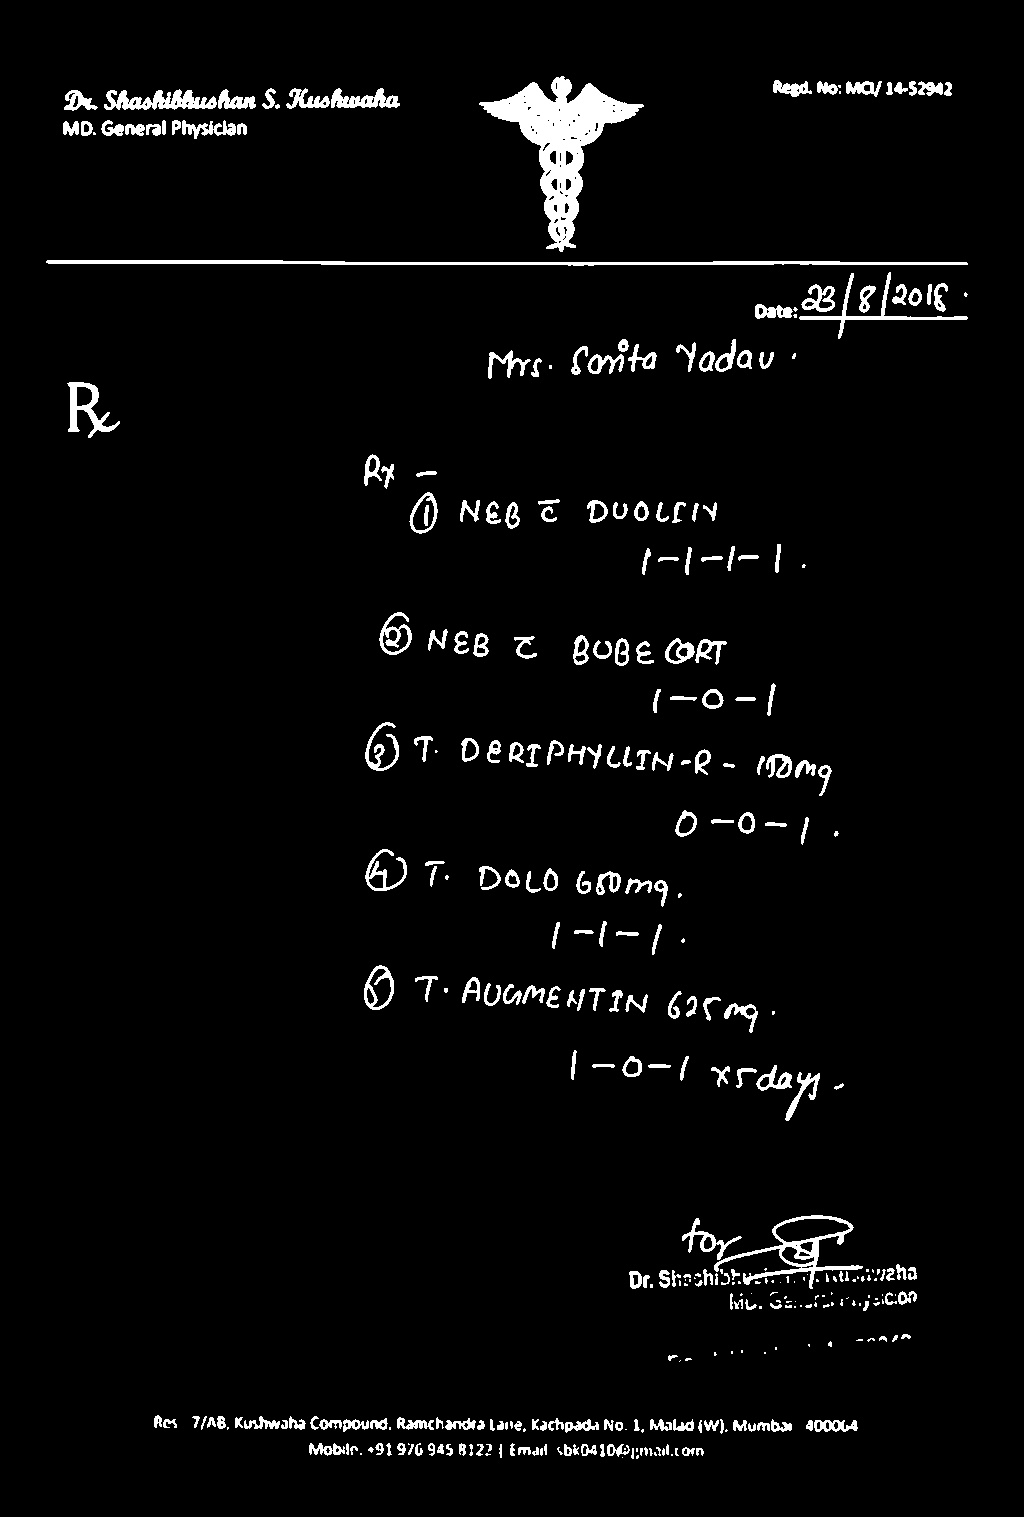 Dr. Shashibhushan S. Kushwaha
Regd. No: MCI/ 14-52942
MD. General Physician
Date: 23/8/2018.
Mrs. Sarita Yadav.
Rx
Rx -
① NEB c̄ DUOLIN
1-1-1-1.
② NEB c̄ BUDECORT
1-0-1
③ T. DERIPHYLLIN-R - 150mg
0-0-1.
④ T. DOLO 650mg.
1-1-1.
⑤ T. AUGMENTIN 625mg.
1-0-1 x5days.
for
Dr. Shashibhushan Kushwaha
MD. General Physician
Res 7/AB, Kushwaha Compound, Ramchandra Lane, Kachpada No. 1, Malad (W), Mumbai 400064
Mobile. +91 976 945 8122 | Email sbk0410@gmail.com